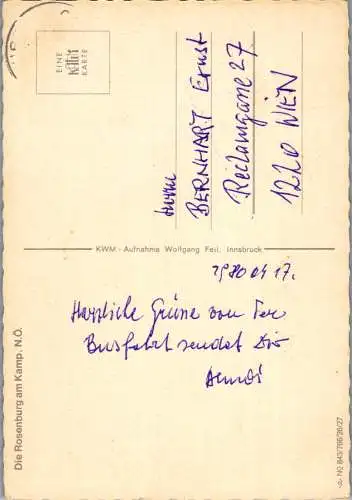 EINE
KARTE
Herrn
BERNHART Ernst
Reclamgasse 27
1220 WIEN
KWM - Aufnahme Wolfgang Feil, Innsbruck
1980 04 17.
Herzliche Grüße von der
Busfahrt sendet Dir
Die Rosenburg am Kamp, N.Ö.